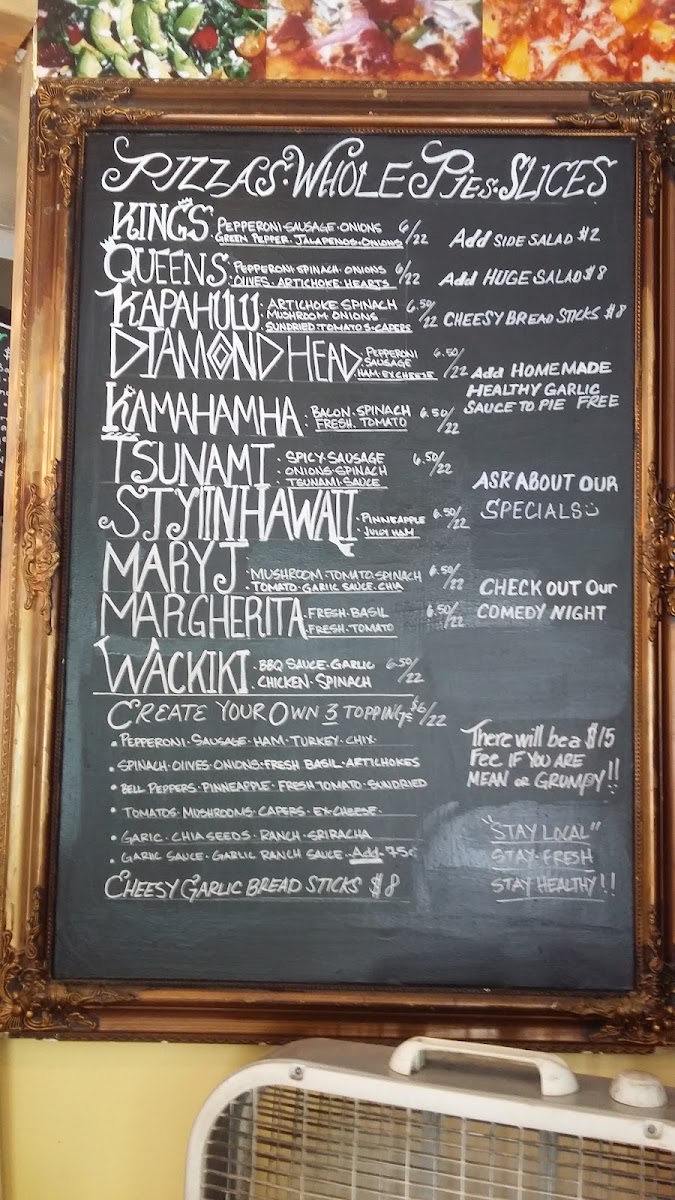 PIZZAS · WHOLE PIES · SLICES
KING'S PEPPERONI · SAUSAGE · ONIONS 6/22
GREEN PEPPER · JALAPENOS · ONIONS
Add SIDE SALAD $2
QUEENS PEPPERONI · SPINACH · ONIONS 6/22
OLIVES · ARTICHOKE HEARTS
Add HUGE SALAD $8
KAPAHULU · ARTICHOKE SPINACH 6.50/22
MUSHROOM ONIONS
SUNDRIED · TOMATOS · CAPERS
CHEESY BREAD STICKS $8
DIAMOND HEAD PEPPERONI 6.50/22
SAUSAGE
HAM · EX CHEESE
Add HOMEMADE
HEALTHY GARLIC
SAUCE TO PIE FREE
KAMAHAMHA : BACON · SPINACH 6.50/22
FRESH · TOMATO
TSUNAMI · SPICY SAUSAGE 6.50/22
· ONIONS · SPINACH
TSUNAMI · SAUCE
ASK ABOUT OUR
SPECIALS
STYLINHAWAII · PINNEAPPLE 6.50/22
JUICY HAM
MARY J · MUSHROOM · TOMATO · SPINACH 6.50/22
TOMATO · GARLIC SAUCE · CHIA
CHECK OUT OUR
COMEDY NIGHT
MARGHERITA · FRESH · BASIL 6.50/22
FRESH · TOMATO
WACKIKI · BBQ SAUCE · GARLIC 6.50/22
· CHICKEN · SPINACH
CREATE YOUR OWN 3 TOPPINGS $6/22
• PEPPERONI · SAUSAGE · HAM · TURKEY · CHIX
• SPINACH · OLIVES · ONIONS · FRESH BASIL · ARTICHOKES
• BELL PEPPERS · PINNEAPPLE · FRESH TOMATO · SUNDRIED
• TOMATOS · MUSHROOMS · CAPERS · EX-CHEESE
• GARIC · CHIA SEEDS · RANCH · SRIRACHA
• GARLIC SAUCE · GARLIC RANCH SAUCE · Add 75¢
CHEESY GARLIC BREAD STICKS $8
There will be a $15
FEE IF YOU ARE
MEAN OR GRUMPY!!
"STAY LOCAL"
STAY · FRESH
STAY HEALTHY!!